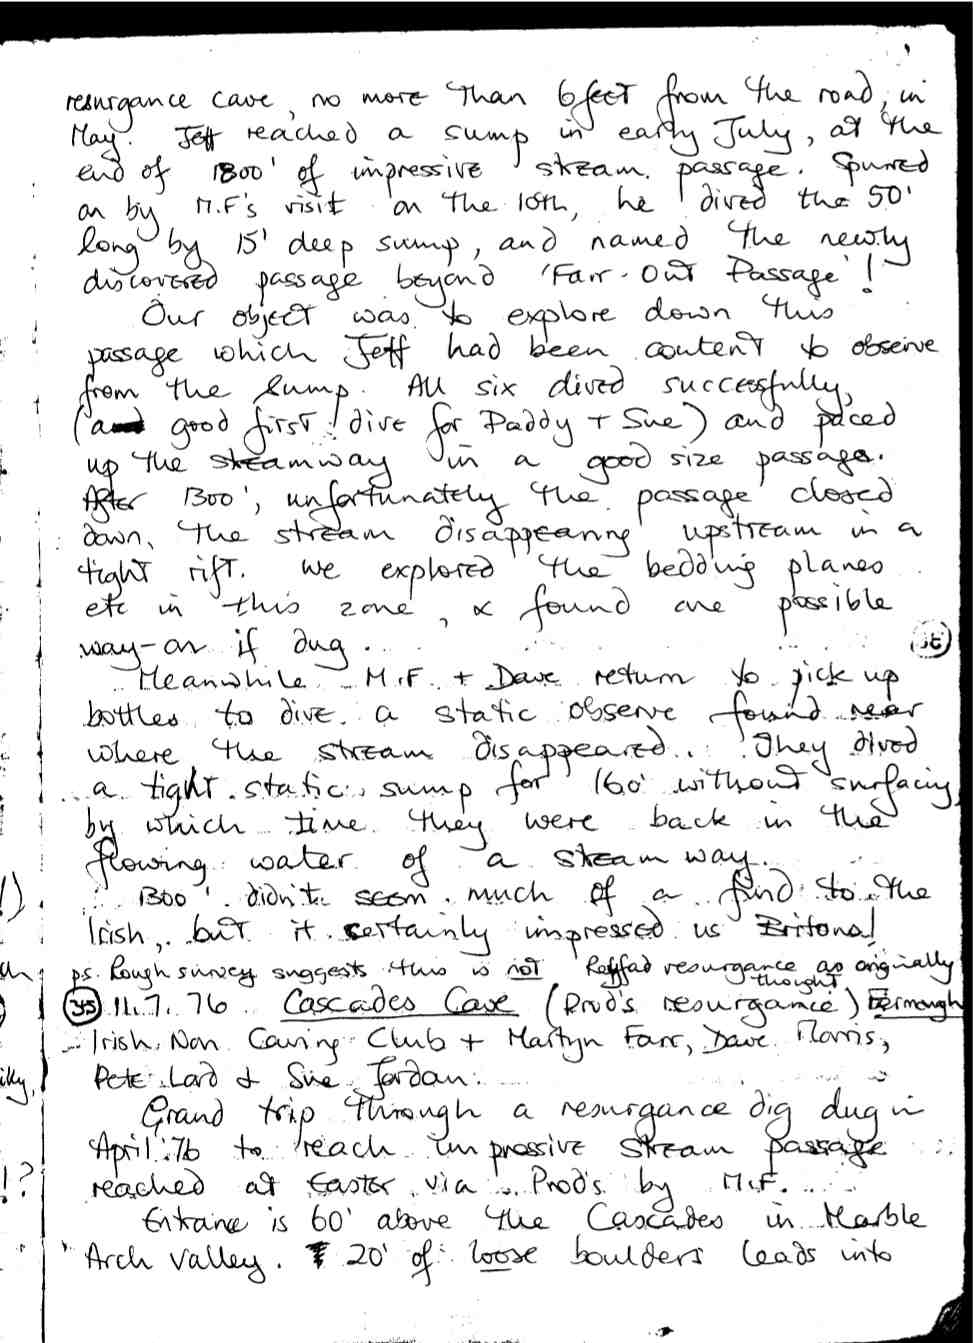 resurgance cave, no more than 6 feet from the road, in
May. Jeff reached a sump in early July, at the
end of 1300' of impressive stream passage. Spurred
on by M.F's visit on the 10th, he dived the 50'
long by 15' deep sump, and named the newly
discovered passage beyond 'Farr-Out Passage'!
Our object was to explore down this
passage which Jeff had been content to observe
from the sump. All six dived successfully,
(a good first dive for Paddy + Sue) and paced
up the streamway in a good size passage.
After 1300', unfortunately the passage closed
down, the stream disappearing upstream in a
tight rift. We explored the bedding planes
etc in this zone, & found one possible
way-on if dug.
Meanwhile M.F. + Dave return to pick up
bottles to dive a static observe found near
where the stream disappeared. They dived
a tight static sump for 160' without surfacing,
by which time they were back in the
flowing water of a steam way.
1300' didn't seem much of a find to the
Irish, but it certainly impressed us Britons!
ps. Rough survey suggests this is not resurgance as originally
thought
35 11.7.76 Cascades Cave (Prod's resurgance) Fermanagh
Irish Non Caving Club + Martyn Farr, Dave Morris,
Pete Lord & Sue Jordan.
Grand trip through a resurgance dig dug in
April '76 to reach impressive stream passage
reached at Easter via Prod's by M.F.
Entrance is 60' above the Cascades in Marble
Arch Valley. 20' of loose boulders leads into